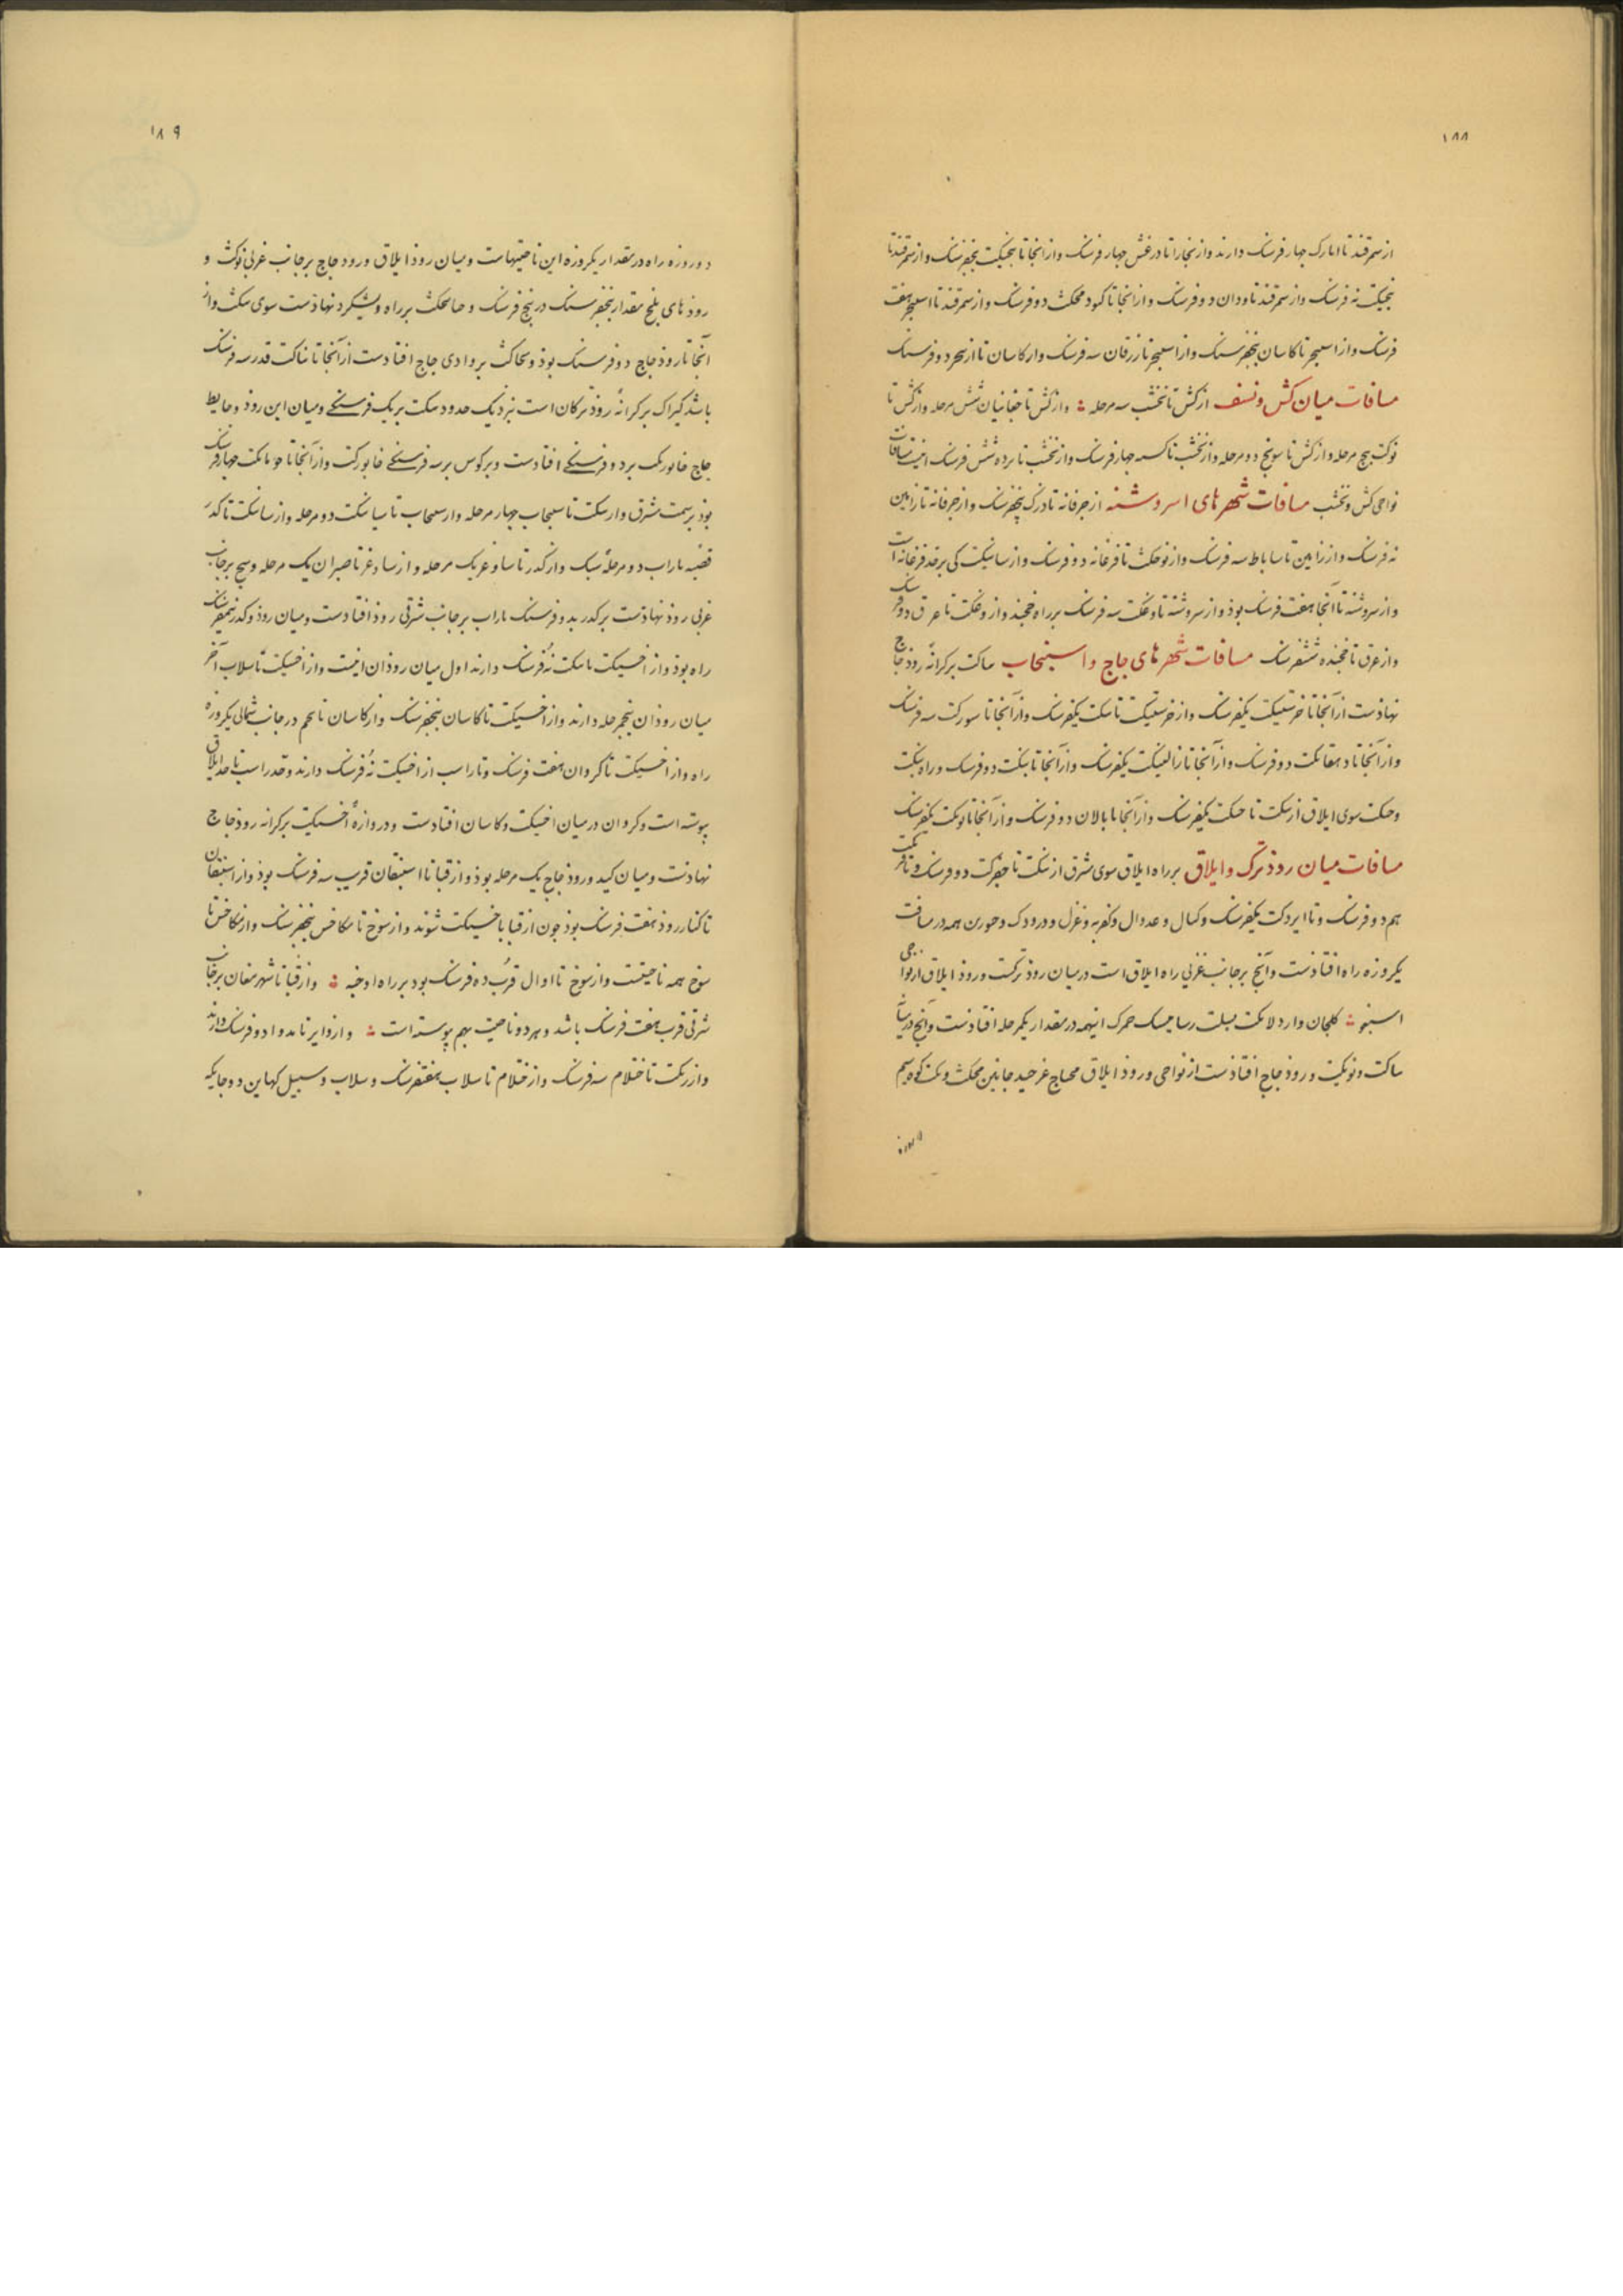 ۱۸۸
از سمرقند تا ابارک چهار فرسنک دارند و از بخارا تا درغش چهار فرسنک و از انجا تا بنجیکت پنجفرسنک و از سمرقند تا
بنجیکت نه فرسنک و از سمرقند تا ودان دو فرسنک و از انجا تا کبودمحکث دو فرسنک و از سمرقند تا اسبیجر هفت
فرسنک و از اسبیجر تا کاسان پنجفرسنک و از اسبیجر تا زرقان سه فرسنک و از کاسان تا ازبجر دو فرسنک
مسافات میان کش و نسف از کش تا نخشب سه مرحله و از کش تا جغانیان شش مرحله و از کش تا
نوکت پنج مرحله و از کش تا سونج دو مرحله و از نخشب تا کسبه چهار فرسنک و از نخشب تا بزده شش فرسنک اینست مسافات
نواحی کش و نخشب مسافات شهرهای اسروشنه از خرقانه تا دزک پنجفرسنک و از خرقانه تا زامین
نه فرسنک و از زامین تا ساباط سه فرسنک و از نوجکث تا فرغانه دو فرسنک و از ساینکت کی بر حد فرغانه است
و از سروشنه تا آنجا هفت فرسنک بوذ و از سروشنه تا وغکت سه فرسنک بر راه خجند و از وغکت تا عرق دو فرسنک
و از عرق تا خجنده ششفرسنک مسافات شهرهای جاج و اسبیجاب ساکت بر کرانهٔ روذ جاج
نهاذست از آنجا تا خرشکیت یکفرسنک و از خرشکیت تا سکت یکفرسنک و از آنجا تا سورکت سه فرسنک
و از آنجا تا دهقانکت دو فرسنک و از آنجا تا زالتیکت یکفرسنک و از آنجا تا بنکت دو فرسنک و راه بنکت
وحکت سوی ایلاق از سکت تا حکت یکفرسنک و از آنجا تا بالان دو فرسنک و از آنجا تا نوکت یکفرسنک
مسافات میان روذ ترک و ایلاق بر راه ایلاق سوی شرق از بنکت تا جفرکت دو فرسنک و تا
هم دو فرسنک و تا ایردکت یکفرسنک و کمال و عدوال و کفریه و غزل و ورودک و جوزن همه در مسافت
یکروزه راه افتاذست و آنچ بر جانب غربی راه ایلاق است در میان روذ ترکت و روذ ایلاق از نواحی
اسبنو کلجان و ارد لانکت اینهمه در مقدار یکمرحله افتاذست و آنچ در میان
ساکت و نوکیت و روذ جاج افتاذست از نواحی و روذ ایلاق کوه سیم
۱۸۹
دو روزه راه در مقدار یکروزه این ناحیتهاست و میان روذ ایلاق و روذ جاج بر جانب غربی نوکث و
روذهای بلخ مقدار پنجفرسنک در پنج فرسنک و بر راه ویشکرد نهاذست سوی سکت و از
آنجا تا روذ جاج دو فرسنک بوذ و نحاکث بر وادی جاج افتادست از آنجا تا بناکت قدر سه فرسنک
باشد کبراک بر کرانهٔ روذ ترکان است نزدیک حدود سکت بر یک فرسنکی و میان این روذ و حایط
جاج خابورکب بر دو فرسنکی افتادست و برکوس بر سه فرسنکی خابورکت و از آنجا تا چهار فرسنک
بوذ بر سمت شرق و از سکت تا سبیجاب چهار مرحله و از سبیجاب تا سیاسکت دو مرحله و از سیاسکت تا کدر
قصبه باراب دو مرحلهٔ سبک و از کدر تا ساوغر یک مرحله و از ساوغر تا صبران یک مرحله و سیج بر جانب
غربی روذ نهاذست بر کدر بدو فرسنک باراب بر جانب شرقی روذ افتادست و میان روذ و کدر نیمفرسنک
راه بوذ و از اخسیکت تا سکت نُه فرسنک دارند اول میان روذان اینست و از اخسیکت تا سلاب آخر
میان روذان پنجمرحله دارند و از اخسیکت تا کاسان پنجفرسنک و از کاسان تا نجم در جانب شمالی یکروزه
راه و از اخسیکت تا کروان هفت فرسنک و تا راسب از اخسیکت نُه فرسنک دارند و حد راسب تا حد ایلاق
پیوسته است و کروان در میان اخسیکت و کاسان افتادست و دروازهٔ اخسیکت بر کرانه روذ جاج
نهاذست و میان کید و روذ جاج یک مرحله بوذ و از قبا تا اشتیقان قریب سه فرسنک بوذ و از اشتیقان
تا کنار روذ هفت فرسنک بوذ چون از قبا باخسیکت شوند و از سوخ تا بکاخس پنجفرسنک و از بکاخس تا
سوخ همه ناحیتست و از سوخ تا اوال قرب ده فرسنک بود بر راه اوجنه و از قبا تا شهر مغان بر جانب
شرقی قرب هفت فرسنک باشد و هر دو ناحیت بهم پیوسته است و از دایر تا مدوا دو فرسنک دارند
و از رنکت تا ختلام سه فرسنک و از ختلام تا سلاب هفتفرسنک و سلاب و سبیل کهاین دو جایکه